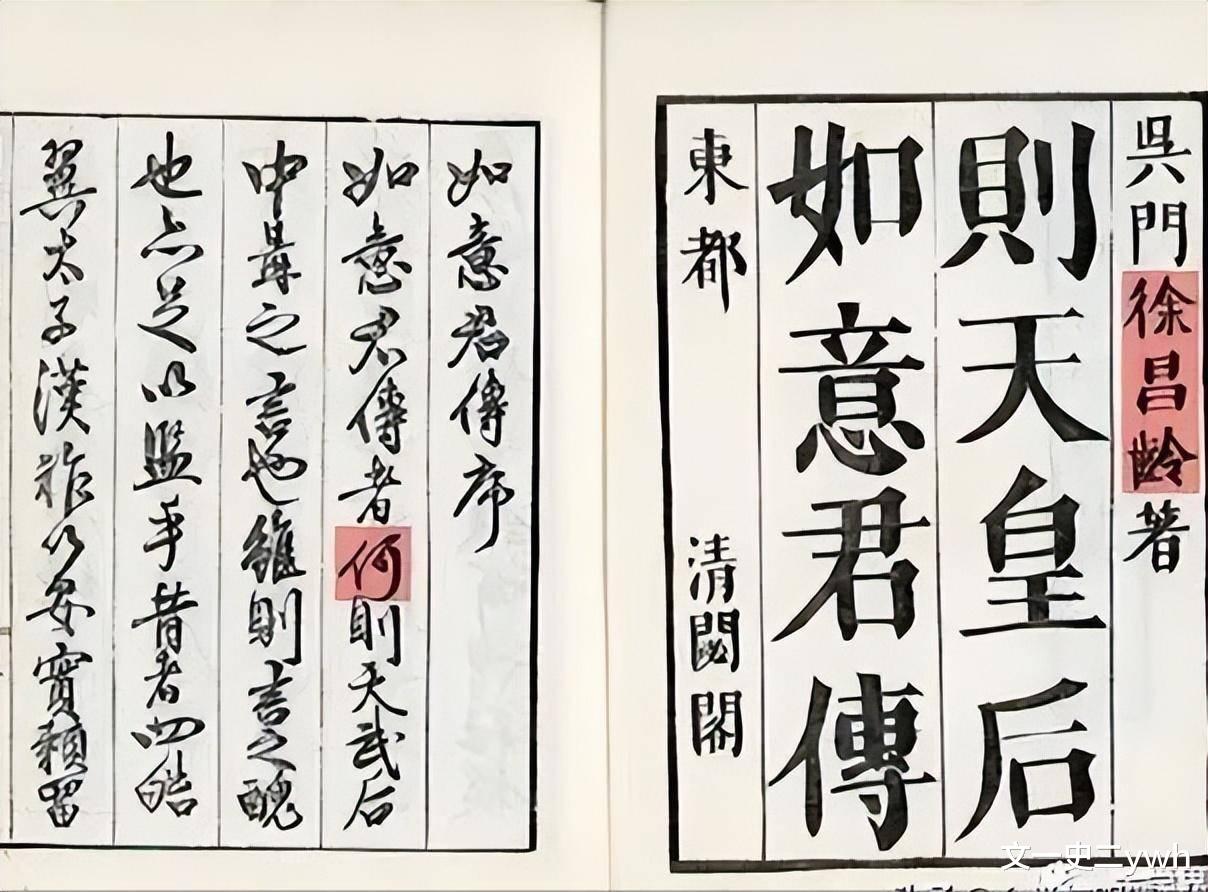 吳門徐昌齡著
則天皇后
如意君傳
東都 清閟閣
如意君傳序
如意君傳者何則天武后
中冓之言也雖則言之醜
也亦足以監乎昔者四皓
翼太子漢祚以安實賴留
文一史二ywh